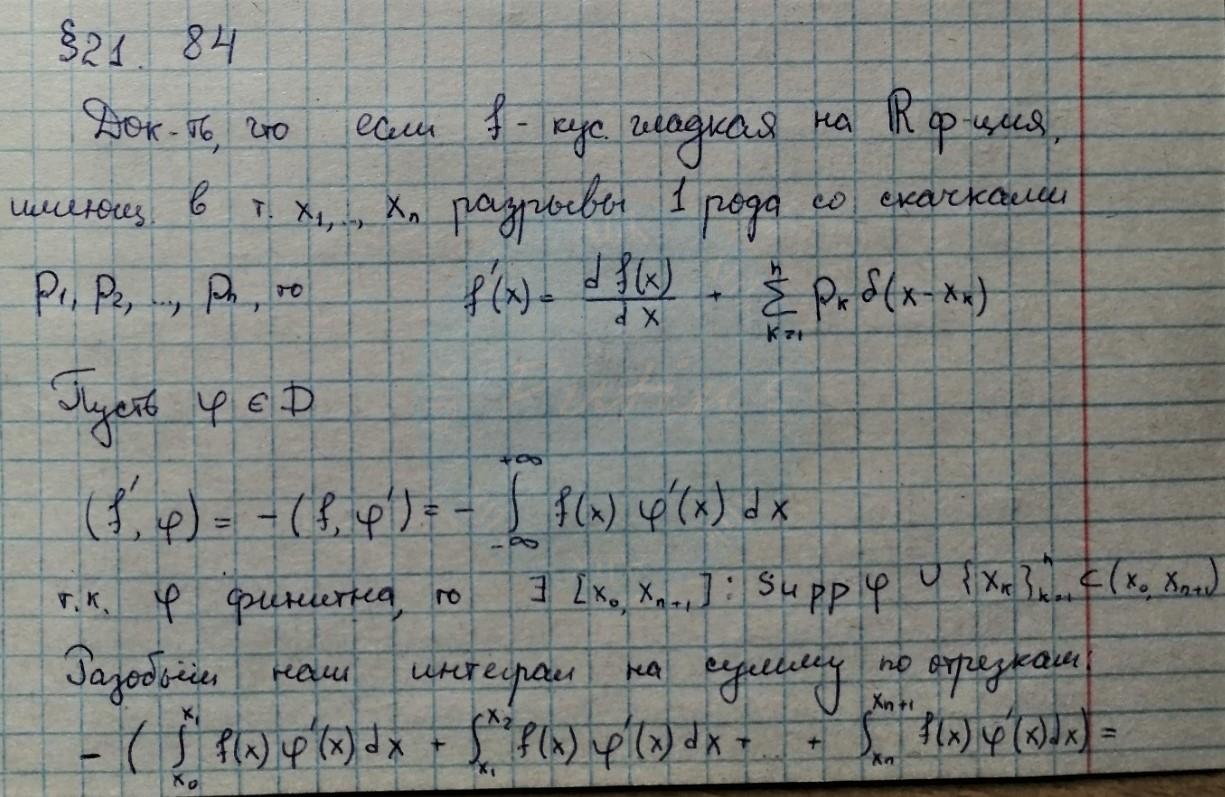 §21. 84
Док-ть, что если f - кус. гладкая на ℝ ф-ция,
имеющ. в т. x₁,..., xₙ разрывы 1 рода со скачками
p₁, p₂, ..., pₙ, то f'(x) = d f(x) / d x + ∑ₖ₌₁ⁿ pₖ δ(x - xₖ)
Пусть φ ∈ D
(f', φ) = - (f, φ') = - ∫₋∞⁺∞ f(x) φ'(x) dx
т.к. φ финитна, то ∃ [x₀, xₙ₊₁] : supp φ ∪ {xₖ}ₖ₌₁ⁿ ⊂ (x₀, xₙ₊₁)
Разобьём наш интеграл на сумму по отрезкам
- ( ∫ₓ₀^x₁ f(x) φ'(x) dx + ∫ₓ₁^x₂ f(x) φ'(x) dx + ... + ∫ₓₙ^xₙ₊₁ f(x) φ'(x) dx) =